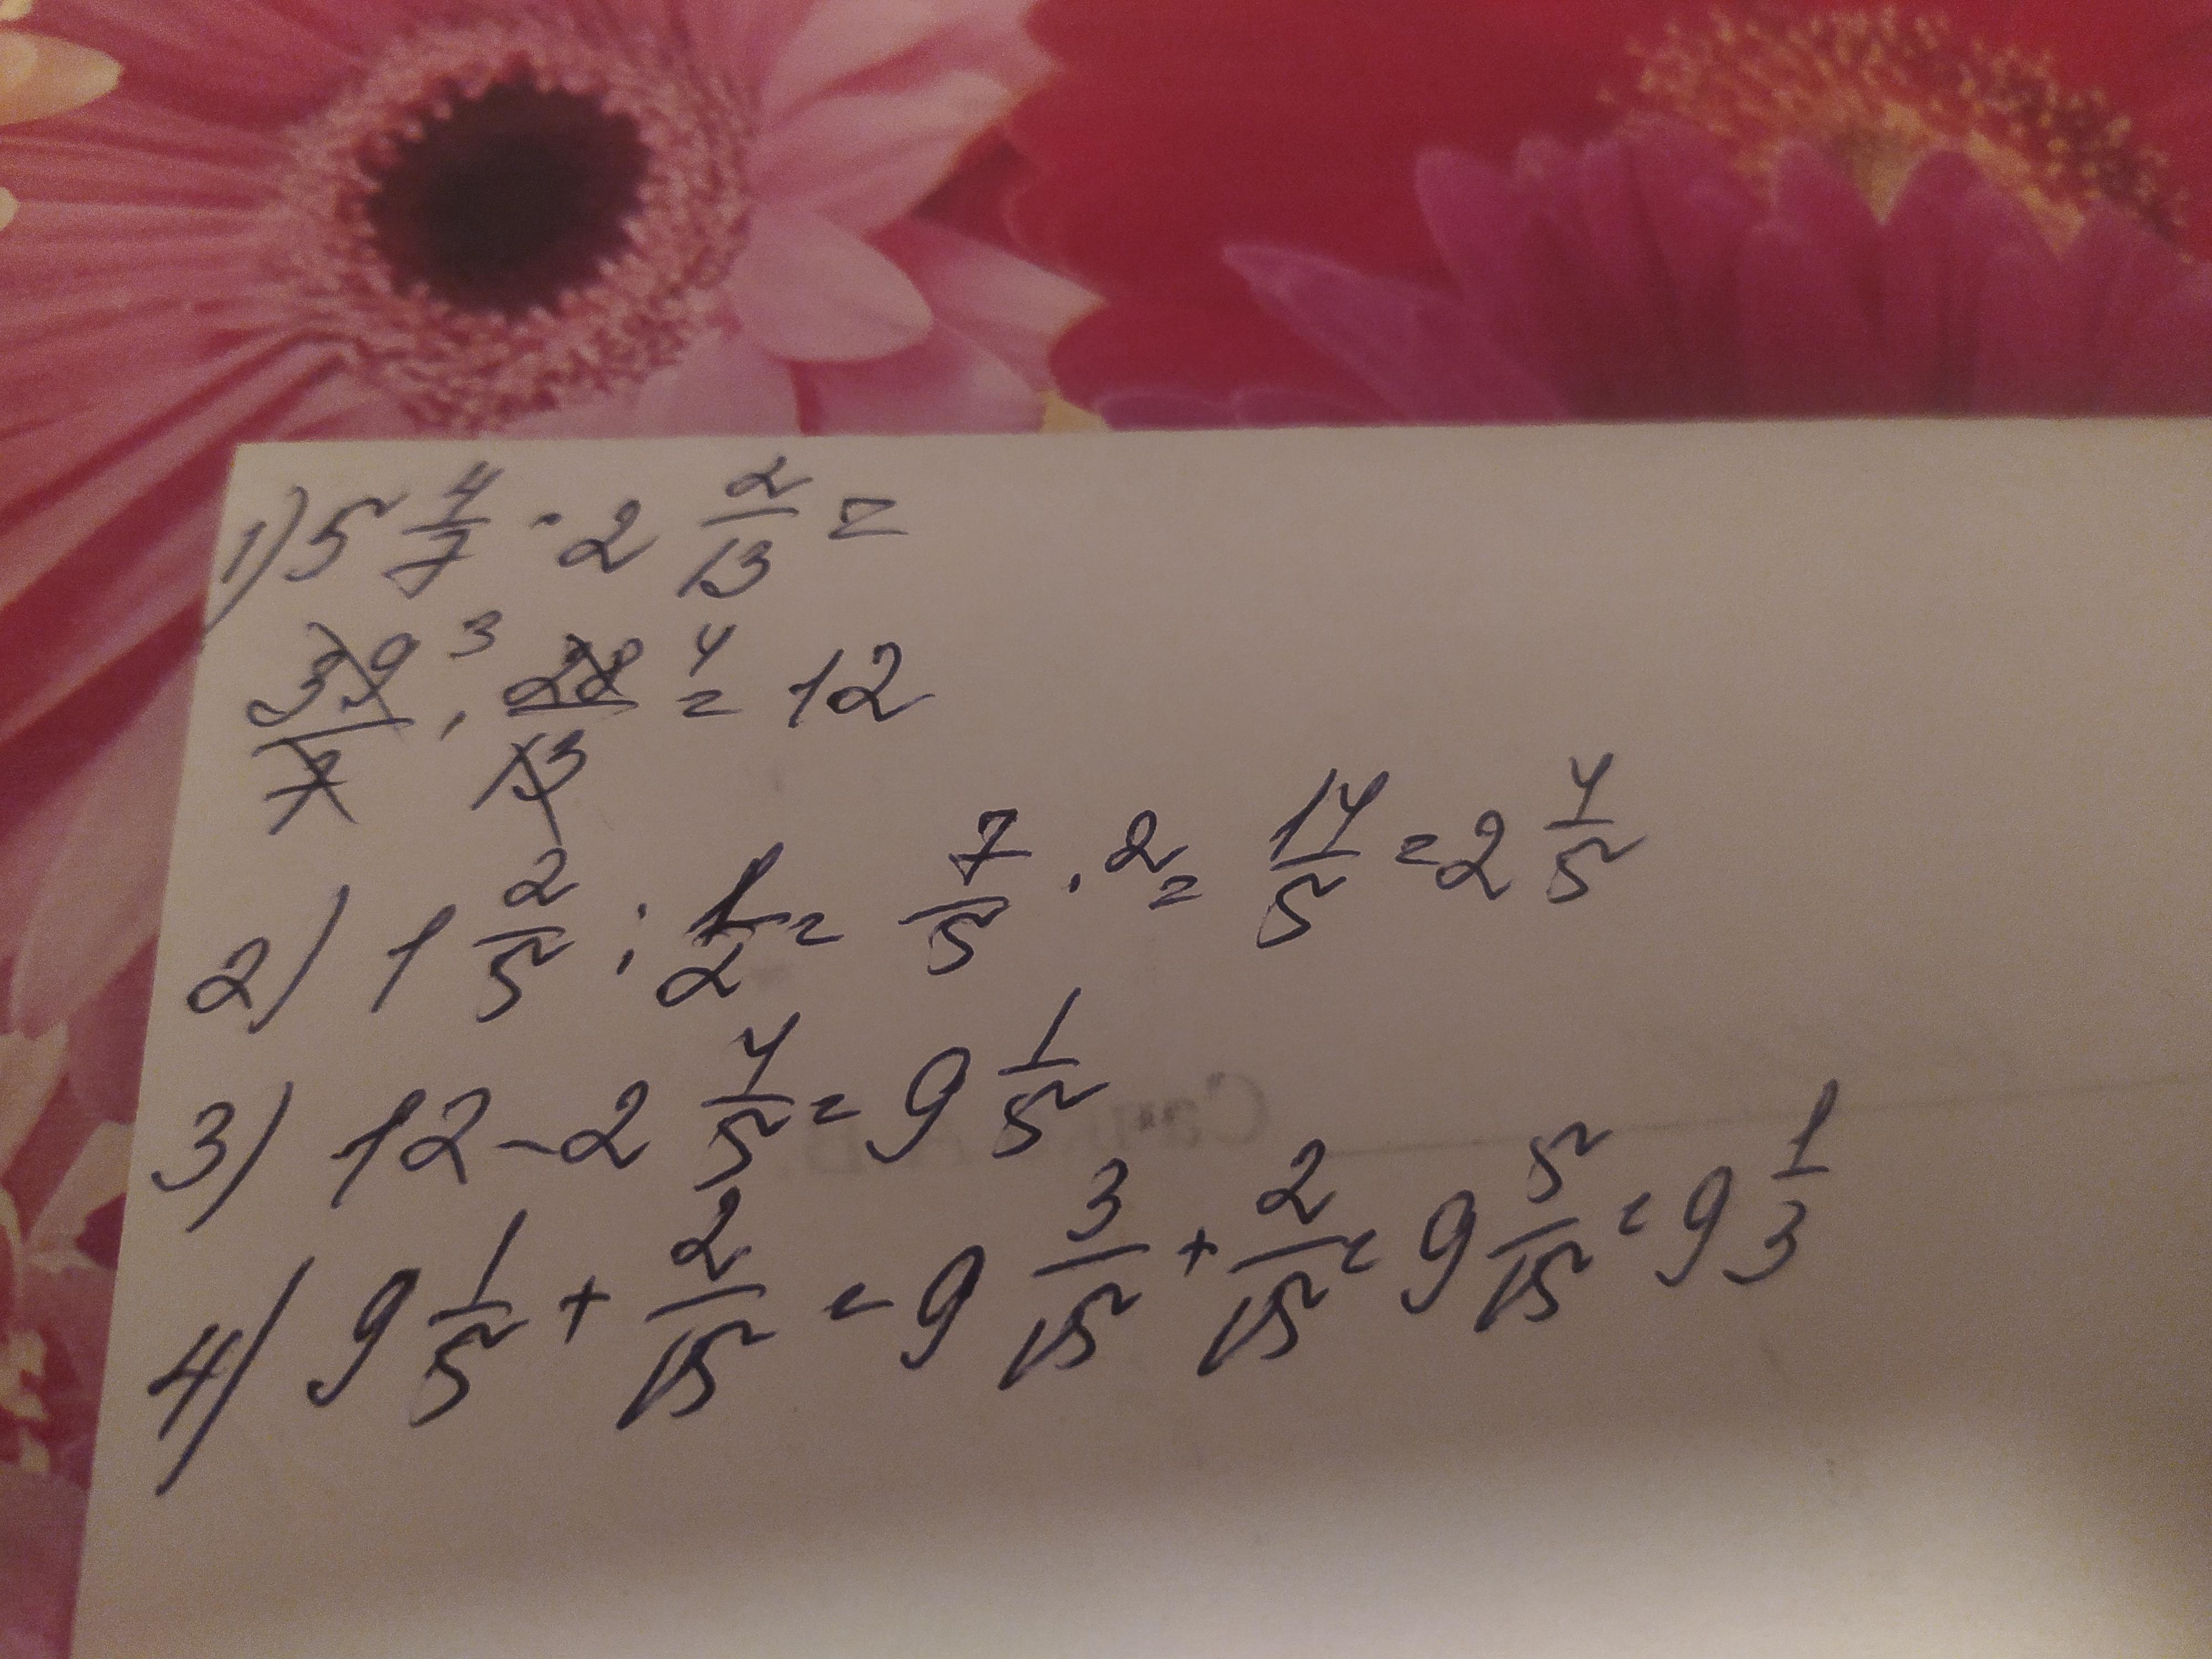 1) 5 4/7 · 2 2/13 =
39/7 3 · 28/13 4 = 12
2) 1 2/5 : 1/2 = 7/5 · 2 = 14/5 = 2 4/5
3) 12 - 2 4/5 = 9 1/5
4) 9 1/5 + 2/15 = 9 3/15 + 2/15 = 9 5/15 = 9 1/3